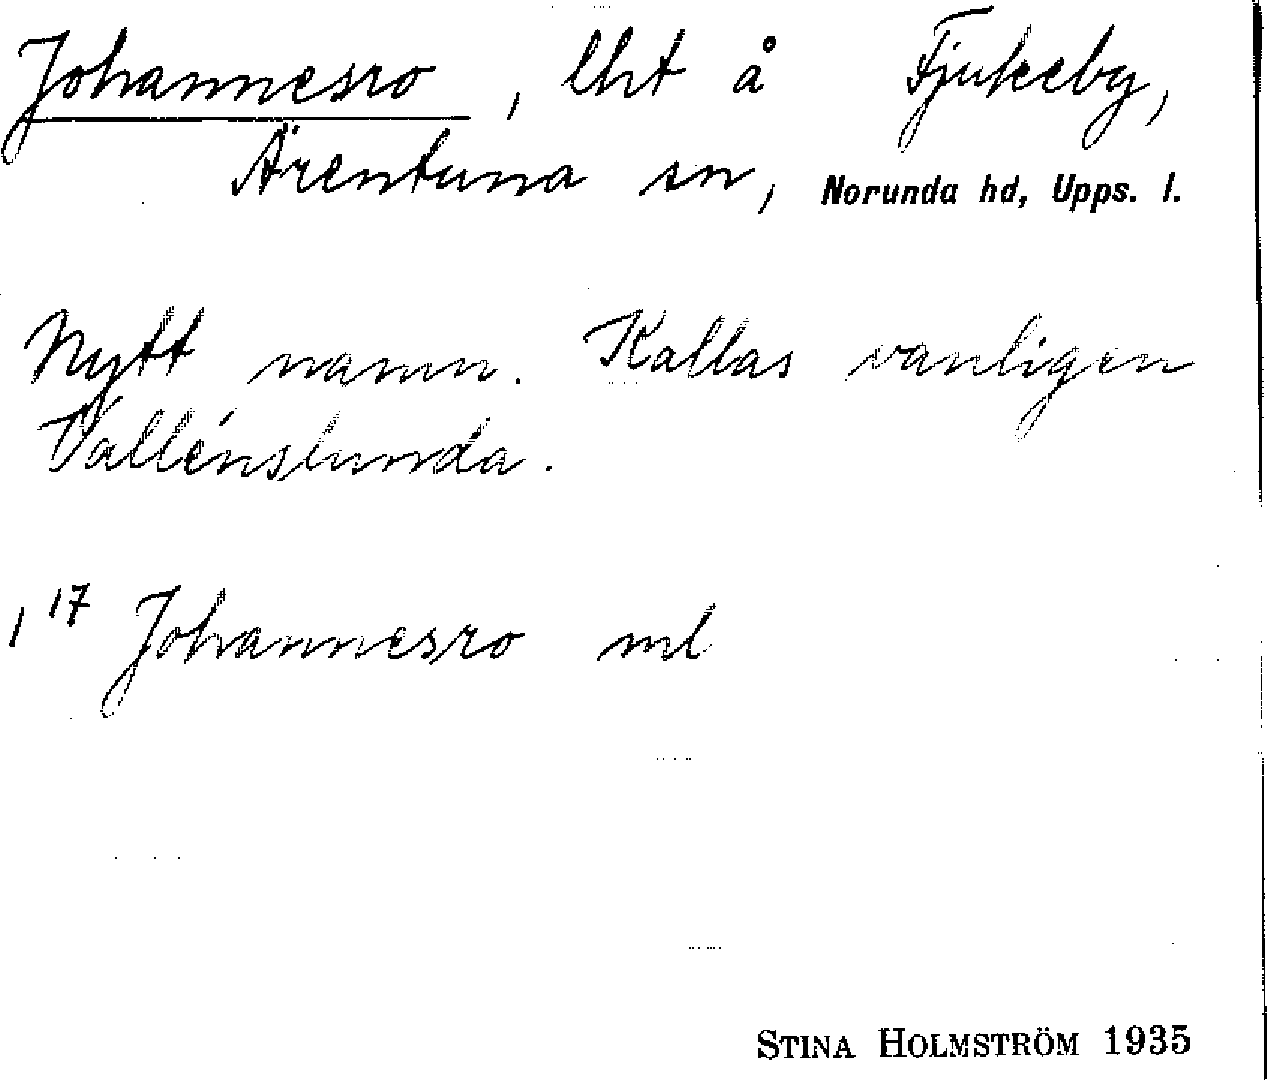 Johannesro, lht å Fjukeby,
Ärentuna sn, Norunda hd, Upps. l.
Nytt namn. Kallas vanligen
Vallénslunda.
1 17 Johannesro ml
STINA HOLMSTRÖM 1935